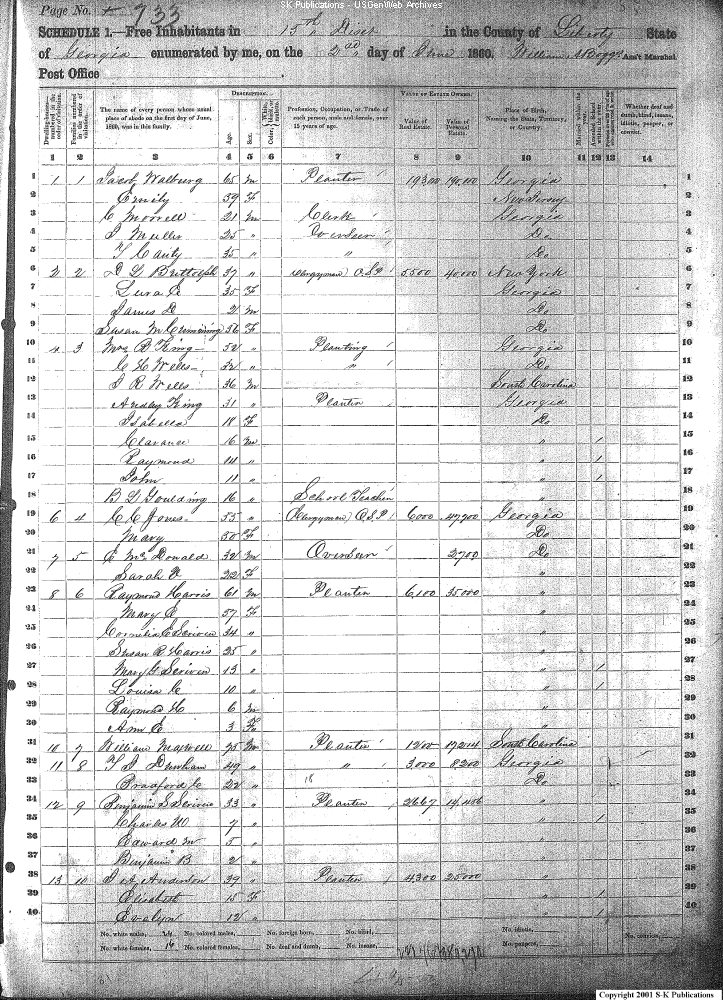 SK Publications - USGenWeb Archives
Page No. 733
SCHEDULE 1.—Free Inhabitants in 15th Dist in the County of Liberty State
of Georgia enumerated by me, on the 2nd day of June 1860. William Ass't Marshal.
Post Office
Dwelling-houses—numbered in the order of visitation.
Families numbered in the order of visitation.
The name of every person whose usual place of abode on the first day of June, 1860, was in this family.
DESCRIPTION.
Age. Sex. Color,
Profession, Occupation, or Trade of each person, male and female, over 15 years of age.
VALUE OF ESTATE OWNED.
Value of Real Estate. Value of Personal Estate.
Place of Birth, Naming the State, Territory, or Country.
Married within the year.
Attended School within the year.
Whether deaf and dumb, blind, insane, idiotic, pauper, or convict.
1 2 3 4 5 6 7 8 9 10 11 12 13 14
1 1 1 Jacob Walburg 65 m Planter Georgia 1
2 Emily 39 F New Jersey 2
3 C Morrell 21 m Clerk Georgia 3
4 J Muller 25 " Overseer Do 4
5 35 " " Do 5
6 2 2 D L Buttolph 37 " Clergyman O.S.P 5500 40000 New York 6
7 Lura E 35 F Georgia 7
8 James D 2 m Do 8
9 Susan M Cumming 56 F Do 9
10 4 3 Mrs B King 52 " Planting Georgia 10
11 C H Wells 32 " " Do 11
12 J R Wells 36 m South Carolina 12
13 Audley King 31 " Planter Georgia 13
14 Isabella 18 F Do 14
15 Clarance 16 m " 1 15
16 Raymond 14 " " 1 16
17 John 11 " " 1 17
18 B L Goulding 16 " School Teacher " 18
19 6 4 C C Jones 55 " Clergyman O.S.P 6000 47700 Georgia 19
20 Mary 50 F Do 20
21 7 5 McDonald 32 m Overseer 2700 Do 21
22 Sarah 22 F " 22
23 8 6 Raymond Harris 61 m Planter 6,100 35000 " 23
24 Mary E 57 F " 24
25 Cornelia E Scriven 34 " " 25
26 Susan R Harris 25 " " 26
27 Mary G Scriven 13 " " 1 27
28 Louisa C 10 " " 1 28
29 Raymond H 6 m " 29
30 Ann E 3 F " 30
31 10 7 William Maxwell 75 m Planter 1200 17214 South Carolina 31
32 11 8 T J Dunham 49 " " 3000 8200 Georgia 32
33 Bradford C 22 " Do 33
34 12 9 Benjamin S Scriven 33 " Planter 2667 14,406 " 34
35 Charles W 7 " " 1 35
36 Edward M 5 " " 36
37 Benjamin B 2 " " 37
38 13 10 J A Anderson 39 " Planter 4300 25000 " 38
39 Elizabeth 15 F " 1 39
40 Evelyn 12 " " 1 40
No. white males, 24 No. colored males, No. foreign born, No. blind, No. idiotic,
No. white females, 16 No. colored females, No. deaf and dumb, No. insane, No. paupers, No. convicts,
Copyright 2001 S-K Publications